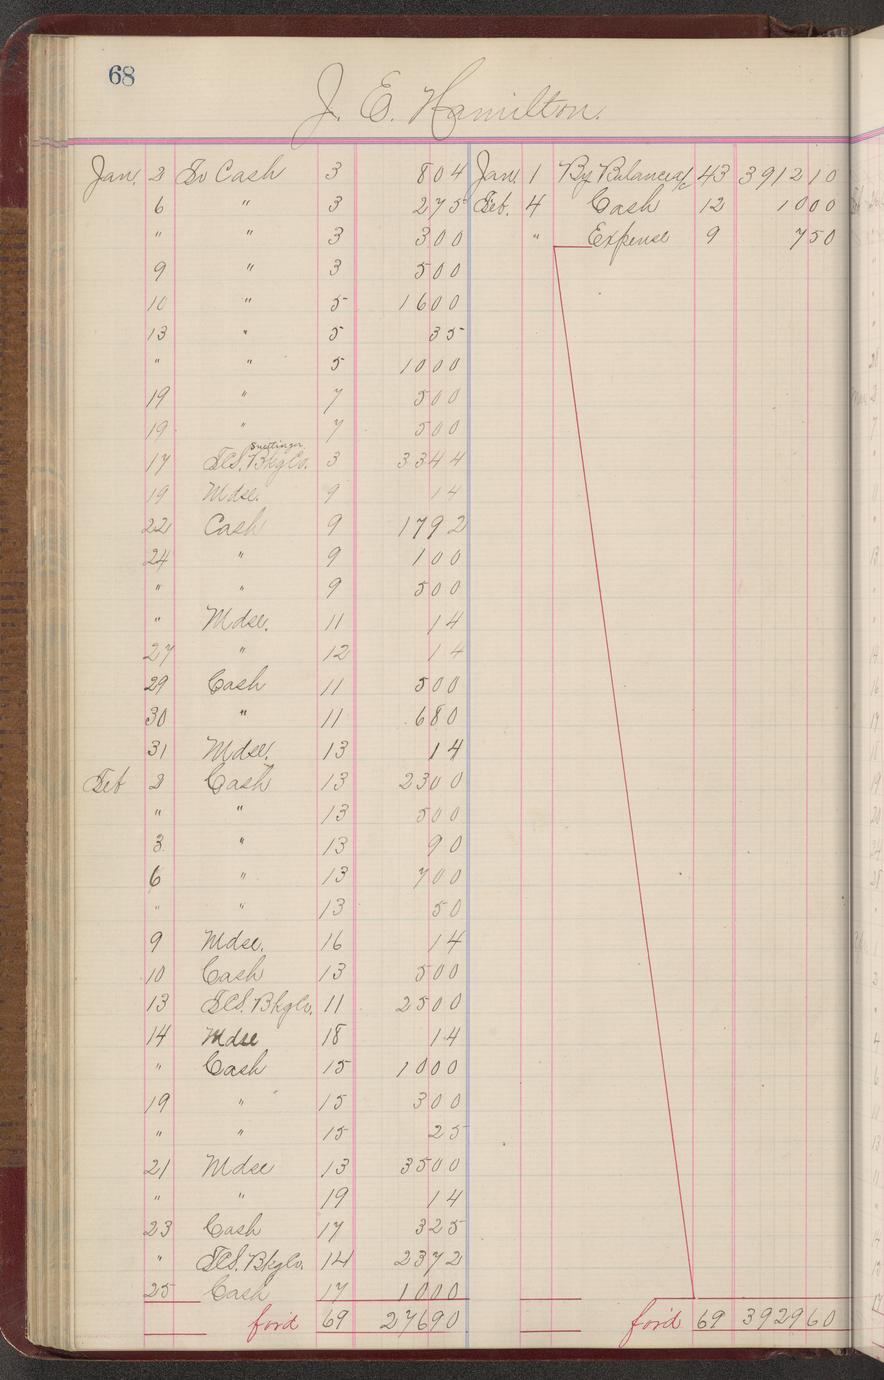 68
J. E. Hamilton.
Jan. 2 To Cash 3 804 Jan. 1 By Balance a/c 43 391210
6 " 3 275 Feb. 4 Cash 12 1000
" " 3 300 " Expense 9 750
9 " 3 500
10 " 5 1600
13 " 5 35
" " 5 1000
19 " 7 500
19 " 7 500
17 Bkg Co. 3 3344
19 Mdse. 9 14
22 Cash 9 1792
24 " 9 100
" " 9 500
" Mdse. 11 14
27 " 12 14
29 Cash 11 500
30 " 11 680
31 Mdse. 13 14
Feb 2 Cash 13 2300
" " 13 500
3 " 13 90
6 " 13 700
" " 13 50
9 Mdse. 16 14
10 Cash 13 500
13 Bkg Co. 11 2500
14 Mdse 18 14
" Cash 15 1000
19 " 15 300
" " 15 25
21 Mdse 13 3500
" " 19 14
23 Cash 17 325
" Bkg Co. 14 2372
25 Cash 17 1000
for'd 69 27690 for'd 69 392960